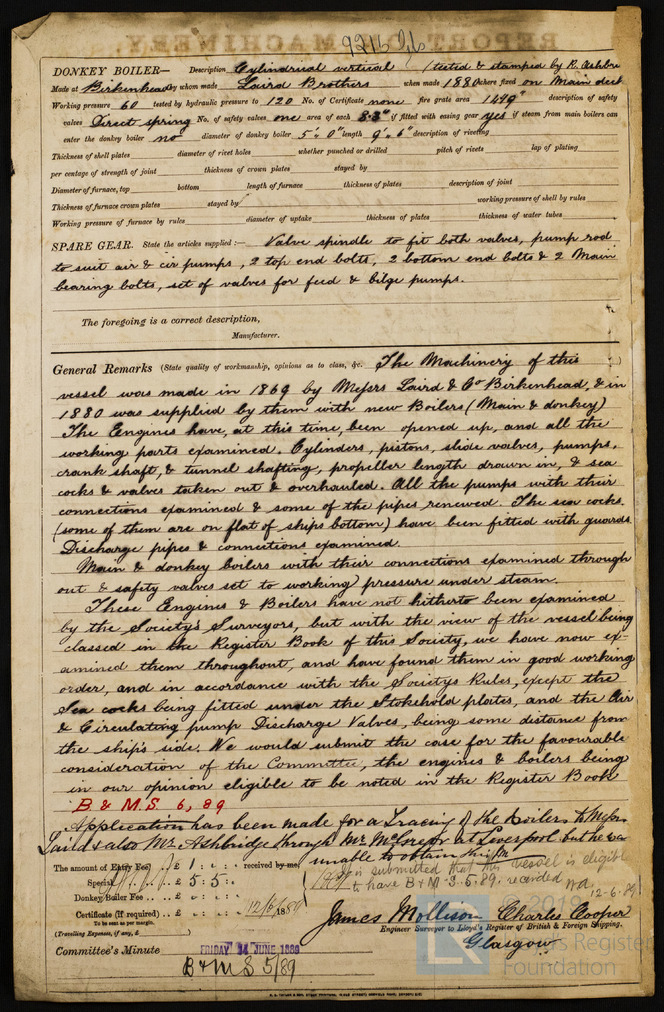 9215 Gls
REPORT ON MACHINERY.
DONKEY BOILER— Description Cylindrical vertical (tested & stamped by R. Ashbri
Made at Birkenhead by whom made Laird Brothers when made 1880 where fixed on Main deck
Working pressure 60 tested by hydraulic pressure to 120 No. of Certificate none fire grate area description of safety
valves Direct spring No. of safety valves one area of each 8.3" if fitted with easing gear yes if steam from main boilers can
enter the donkey boiler no diameter of donkey boiler 5'. 0" length 9'. 6" description of riveting
Thickness of shell plates diameter of rivet holes whether punched or drilled pitch of rivets lap of plating
per centage of strength of joint thickness of crown plates stayed by
Diameter of furnace, top bottom length of furnace thickness of plates description of joint
Thickness of furnace crown plates stayed by working pressure of shell by rules
Working pressure of furnace by rules diameter of uptake thickness of plates thickness of water tubes
SPARE GEAR. State the articles supplied:— Valve spindle to fit both valves, pump rod
to suit air & cir pumps, 2 top end bolts, 2 bottom end bolts & 2 Main
bearing bolts, set of valves for feed & bilge pumps.
The foregoing is a correct description,
Manufacturer.
General Remarks (State quality of workmanship, opinions as to class, &c. The Machinery of this
vessel was made in 1869 by Messrs Laird & Co Birkenhead, & in
1880 was supplied by them with new Boilers (Main & donkey)
The Engines have, at this time, been opened up, and all the
working parts examined. Cylinders, pistons, slide valves, pumps,
crank shaft, & tunnel shafting, propeller length drawn in, & sea
cocks & valves taken out & overhauled. All the pumps with their
connections examined & some of the pipes renewed. The sea cocks
(some of them are on flat of ships bottom) have been fitted with guards
Discharge pipes & connections examined.
Main & donkey boilers with their connections examined through
out & safety valves set to working pressure under steam.
These Engines & Boilers have not hitherto been examined
by the Society's Surveyors, but with the view of the vessel being
classed in the Register Book of this Society, we have now ex-
amined them throughout, and have found them in good working
order, and in accordance with the Societys Rules, except the
Sea cocks being fitted under the Stokehold plates, and the Air
& Circulating pump Discharge Valves, being some distance from
the ship's side. We would submit the case for the favourable
consideration of the Committee, the engines & boilers being
in our opinion eligible to be noted in the Register Book
B. & M.S. 6, 89
Application has been made for a Tracing of the boilers to Messrs
Laird & also Mr. Ashbridge through Mr McGregor at Liverpool but he was
unable to obtain
The amount of Entry Fee £ 1 : : received by me,
Special £ 5 : 5 :
Donkey Boiler Fee £ : :
Certificate (if required) £ : : 12/6/1889
To be sent as per margin.
(Travelling Expenses, if any, £ )
It is submitted that this vessel is eligible
to have B & M S. 5. 89. recorded
12-6-89
James Mollison Charles Cooper
Engineer Surveyor to Lloyd's Register of British & Foreign Shipping.
Glasgow
Committee's Minute FRIDAY 14 JUNE 1889
B & M S 5/89
2019
Lloyd's Register
Foundation